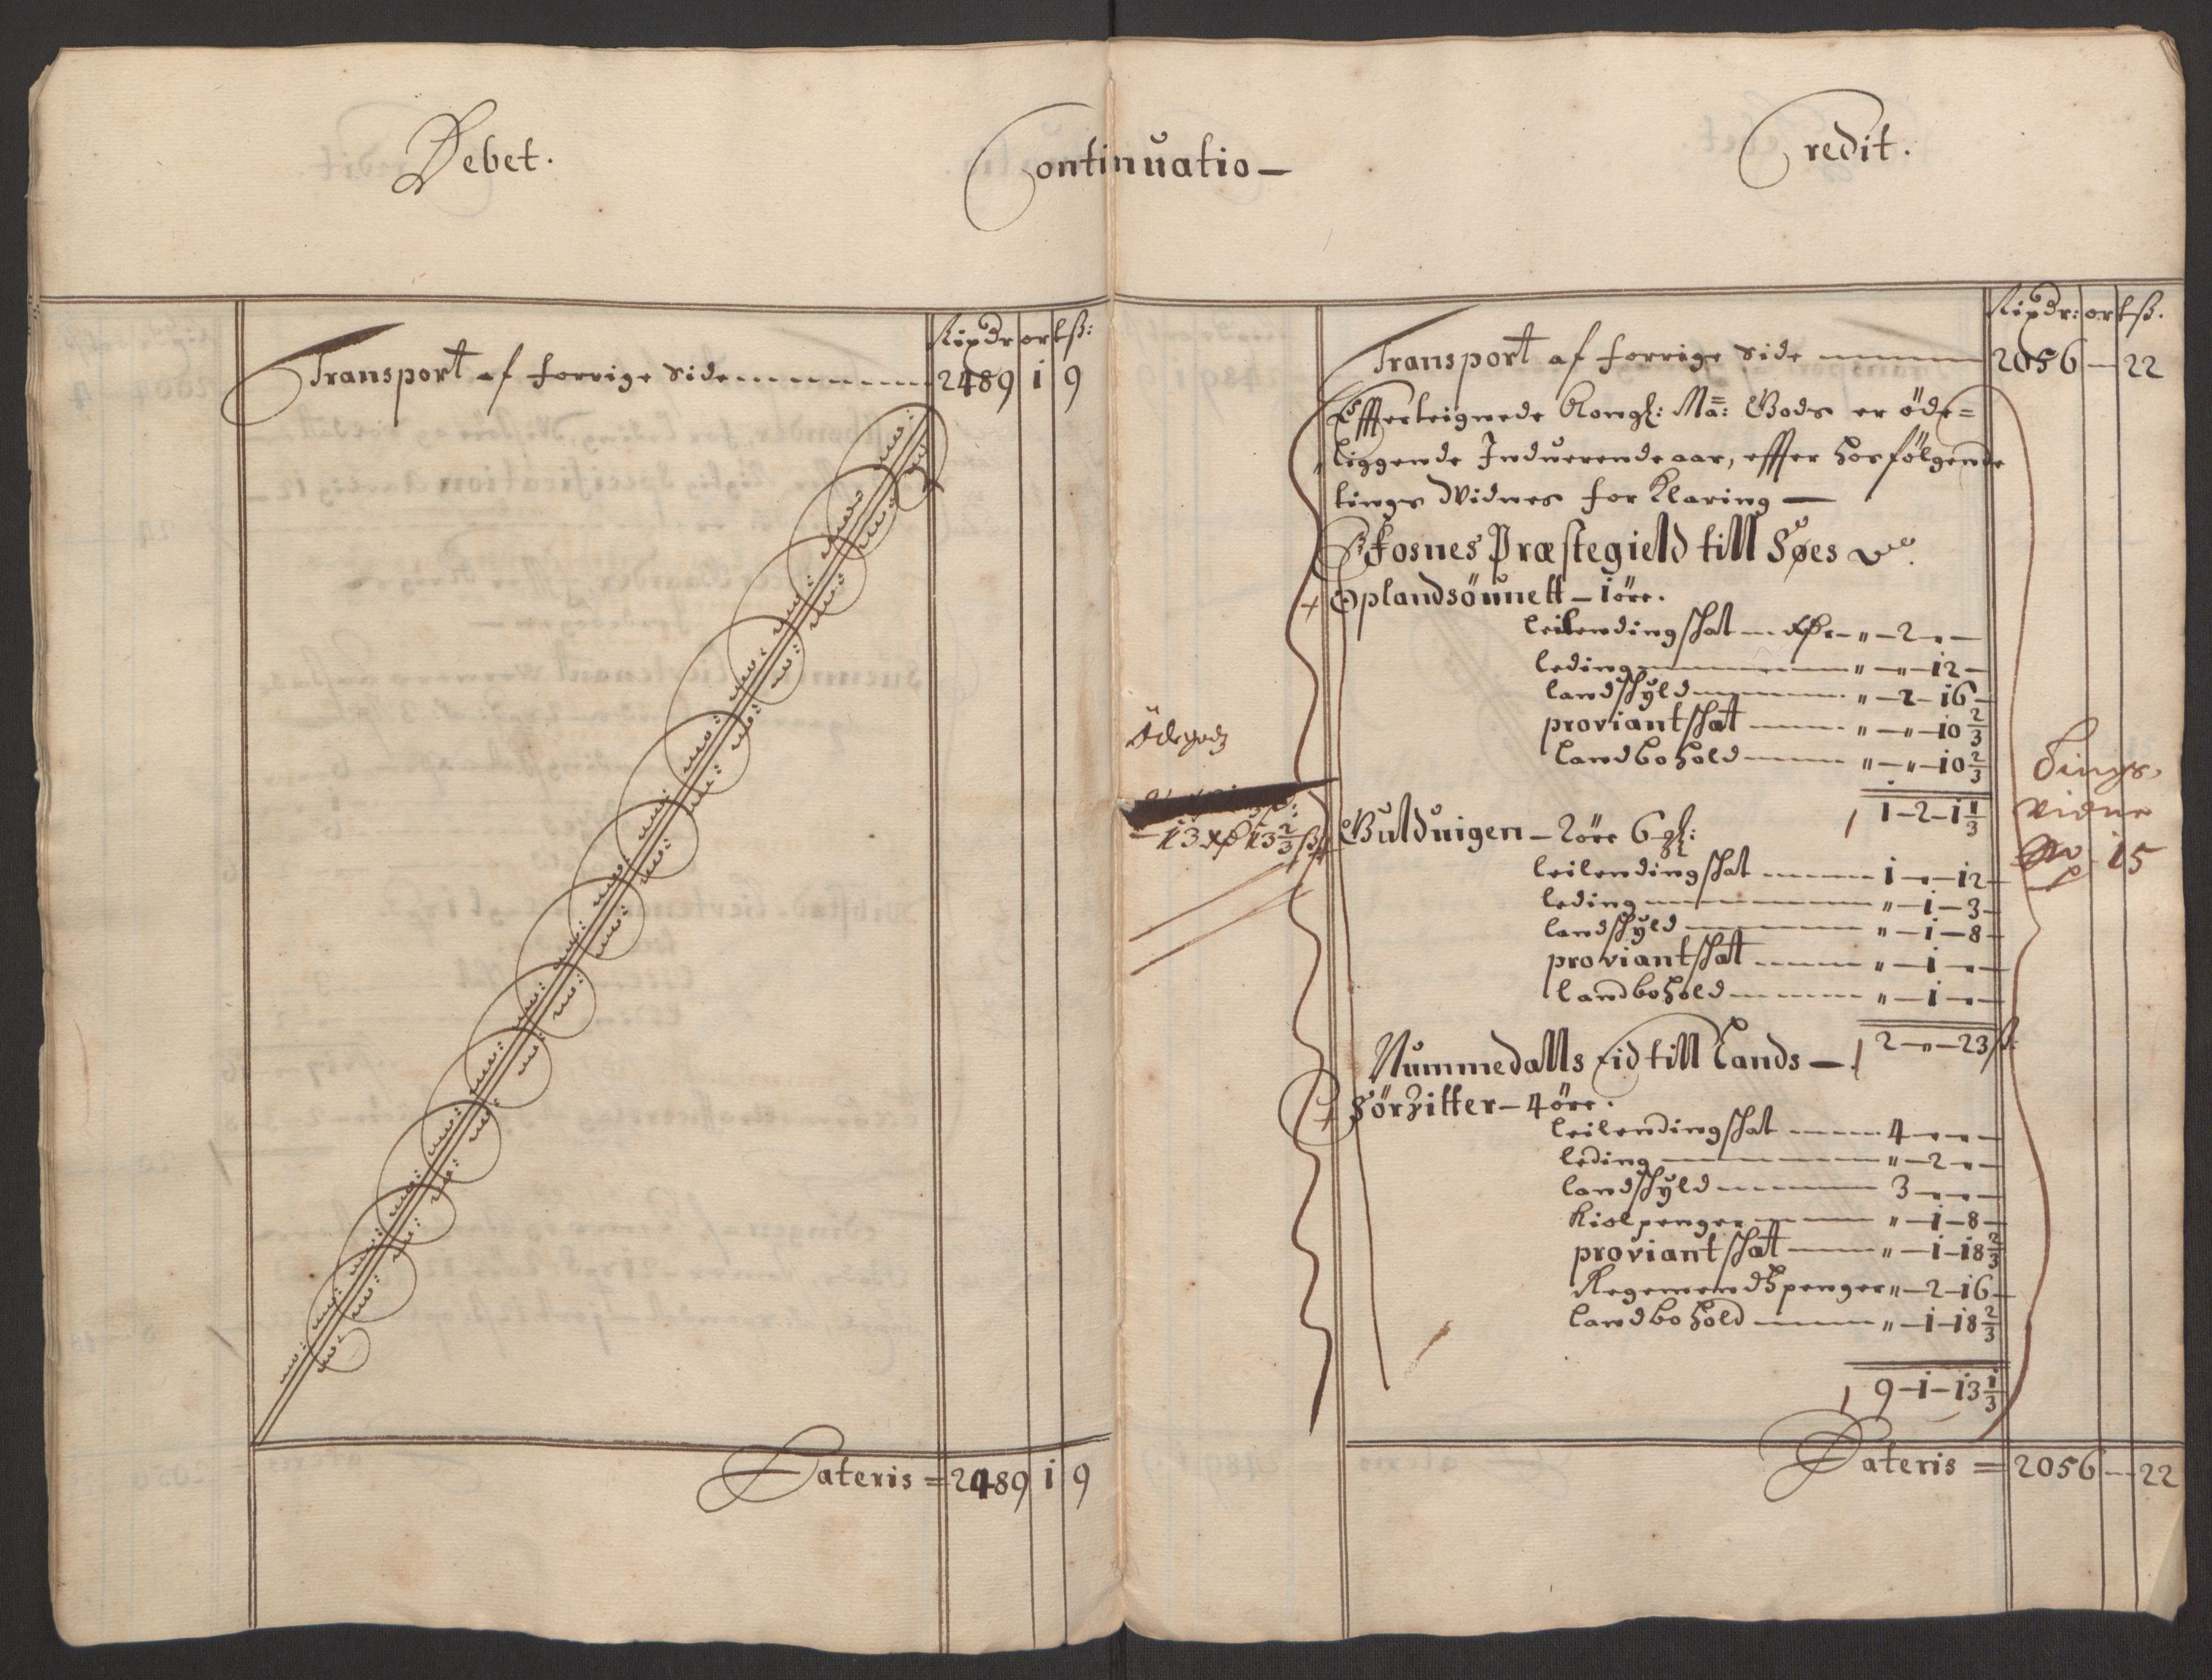 Debet.
Continuatio
Credit.
Rixdr ort ß:
Transport af forrige side 2489 1 9
Lateris = 2489 1 9
Rixdr: ort ß.
Transport af forrige side 2056 — 22
Effterteignede Kongl: Ma: Gods er öde=
liggende Indverende aar, effter hosfölgende
tings Widnes forklaring —
Fosnes Præstegield till Søes
Oplandsöunett – 1 öre.
leilendingschat – " – 2 – " –
leding – " – " – 12 –
landschyld – " – 2 – 16 –
proviantschat – " – " – 10 2/3
landbohold – " – " – 10 2/3
1 – 2 – 1 1/3
Ödegods
– 13 13 2/3 ß
Gulduigen – 2 öre 6 gl:
leilendingschat – 1 – " – 12 –
leding – " – 1 – 3 –
landschyld – " – 1 – 8 –
proviantschatt – " – 1 – " –
landbohold – " – 1 – " –
2 – " – 23 ß:
Tings
vidne
No 15
Nummedalls eid till Lands –
Sörzitter – 4 öre.
leilendingschat – 4 – " – " –
leding – " – 2 – " –
landschyld – 3 – " – " –
kiolpenger – " – 1 – 8 –
proviantschatt – " – 1 – 18 2/3
Regemendtzpenger " – 2 – 16 –
landbohold – " – 1 – 18 2/3
9 – 1 – 13 1/3
Lateris = 2056 — 22